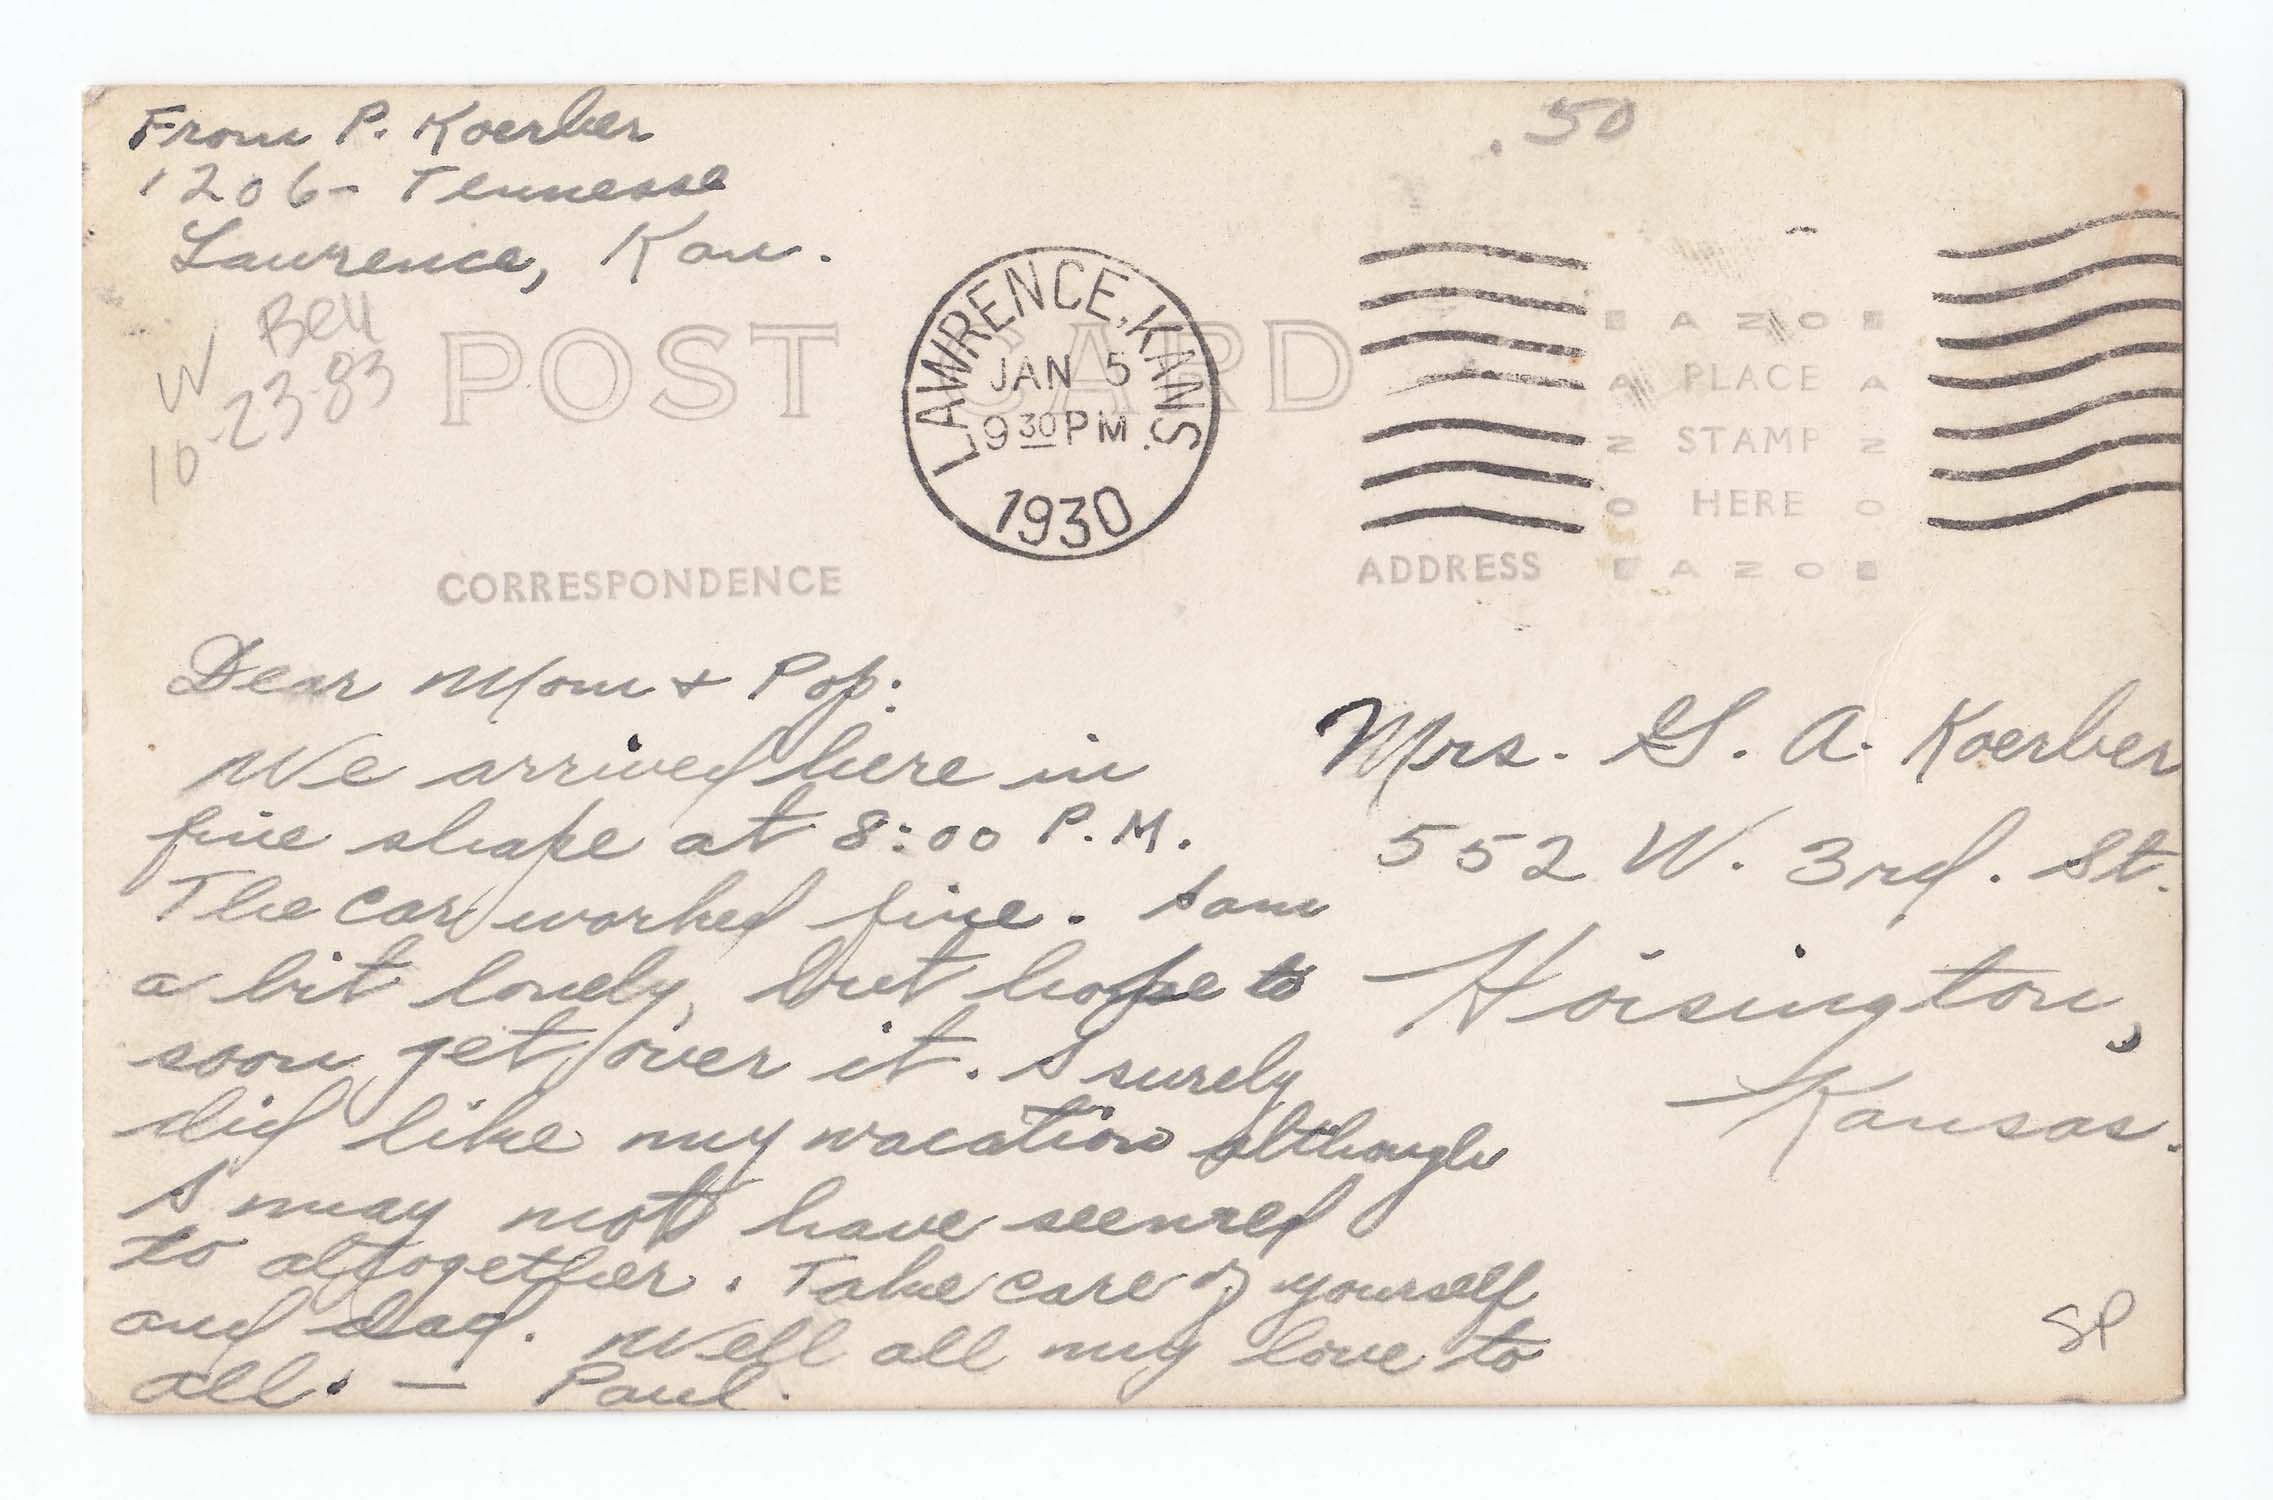 From P. Koerber
1206- Tennesse
Lawrence, Kan.
.50
W Bell
10-23-83
POST CARD
LAWRENCE, KANS.
JAN 5
9 30 PM
1930
E A Z O E
A PLACE A
N STAMP N
O HERE O
E A Z O E
CORRESPONDENCE
ADDRESS
Dear Mom & Pop:
We arrived here in
fine shape at 8:00 P.M.
The car worked fine. I am
a bit lonely, but hope to
soon get over it. I surely
did like my vacation although
I may not have seemed
to altogether. Take care of yourself
and dad. Well all my love to
all. — Paul.
Mrs. G. A. Koerber
552 W. 3rd. St.
Hoisington,
Kansas.
SP